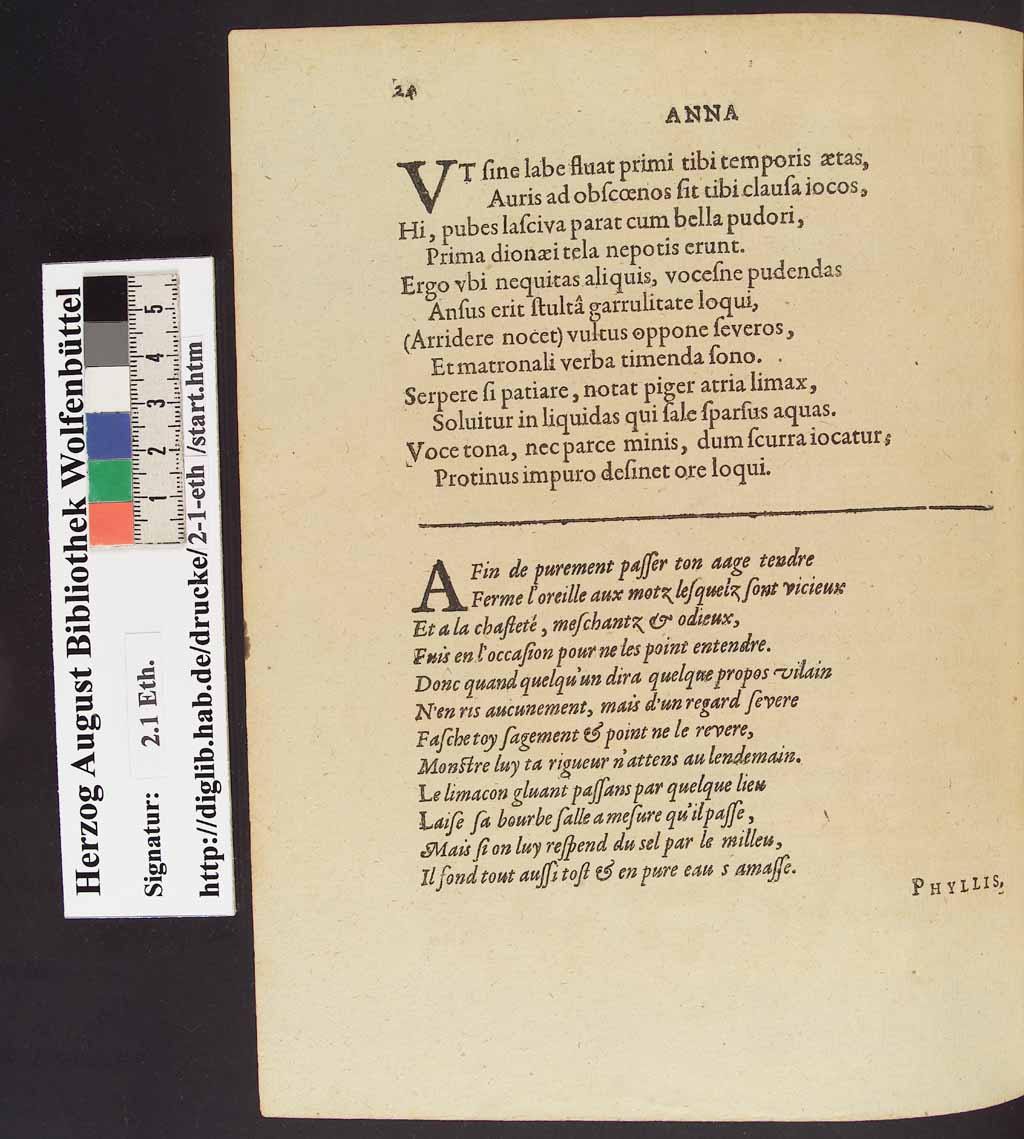 Herzog August Bibliothek Wolfenbüttel
Signatur: 2.1 Eth.
http://diglib.hab.de/drucke/2-1-eth /start.htm
1 2 3 4 5
24
ANNA
VT ſine labe fluat primi tibi temporis ætas,
Auris ad obſcœnos ſit tibi clauſa iocos,
Hi, pubes laſciva parat cum bella pudori,
Prima dionæi tela nepotis erunt.
Ergo vbi nequitas aliquis, voceſne pudendas
Anſus erit ſtultâ garrulitate loqui,
(Arridere nocet) vultus oppone ſeveros,
Et matronali verba timenda ſono.
Serpere ſi patiare, notat piger atria limax,
Soluitur in liquidas qui ſale ſparſus aquas.
Voce tona, nec parce minis, dum ſcurra iocatur;
Protinus impuro deſinet ore loqui.
AFin de purement paſſer ton aage tendre
Ferme l'oreille aux motz leſquelz ſont vicieux
Et a la chaſteté, meſchantz & odieux,
Fuis en l'occaſion pour ne les point entendre.
Donc quand quelqu'un dira quelque propos vilain
N'en ris aucunement, mais d'un regard ſevere
Faſche toy ſagement & point ne le revere,
Monſtre luy ta rigueur n'attens au lendemain.
Le limacon gluant paſſans par quelque lieu
Laiſe ſa bourbe ſalle a meſure qu'il paſſe,
Mais ſi on luy reſpend du sel par le milleu,
Il fond tout auſſi toſt & en pure eau s amaſſe.
PHYLLIS,